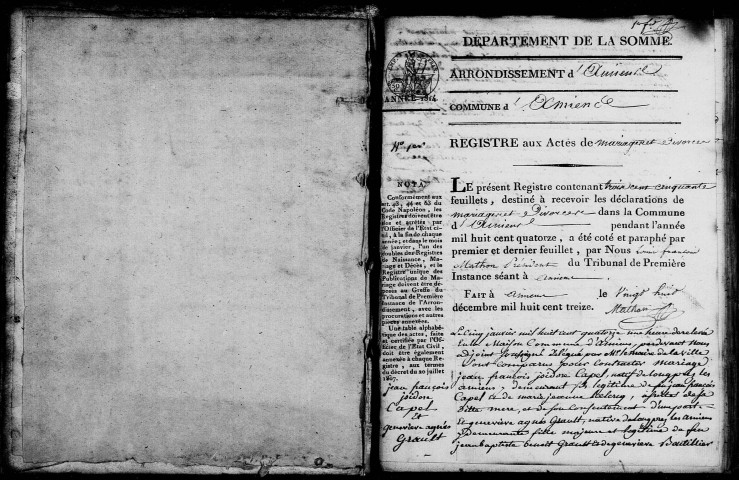 1er ft
DEPARTEMENT DE LA SOMME.
ARRONDISSEMENT d'Amiens
ANNÉE 1814
COMMUNE d'Amiens
No. 1er
REGISTRE aux Actes de mariages et Divorces
NOTA
Conformément aux
art. 43, 44 et 63 du
Code Napoléon, les
Registres doivent être
clos et arrêtés par
l'Officier de l'Etat ci-
vil, à la fin de chaque
année; et dans le mois
de janvier, l'un des
doubles des Registres
de Naissance, Ma-
riage et Décès, et le
Registre unique des
Publications de Ma-
riage doivent être dé-
posés au Greffe du
Tribunal de Première
Instance de l'Arron-
dissement, avec les
procurations et autres
pièces annexées.
Une table alphabé-
tique des actes, faite
et certifiée par l'Of-
ficier de l'Etat Civil,
doit être également
annexée à chaque Re-
gistre, aux termes
du décret du 20 juillet
1807.
LE présent Registre contenant trois cent cinquante
feuillets, destiné à recevoir les déclarations de
mariages et Divorces dans la Commune
d'Amiens pendant l'année
mil huit cent quatorze, a été coté et paraphé par
premier et dernier feuillet, par Nous Louis françois
Mathon Président du Tribunal de Première
Instance séant à Amiens
FAIT à Amiens le Vingt huit
décembre mil huit cent treize.
Mathon
jean françois
Capel
Et
genevieve agnès
Grault
Le cinq janvier mil huit cent quatorze une heure de relevée
En la Maison Commune d'Amiens, pardevant Nous
adjoint Soussigné délégué par Mr le Maire de la Ville
Sont comparus pour Contracter Mariage
jean françois Capel natif de longpré les
amiens, y demeurant fils légitime de feu jean françois
Capel et de marie jeanne Leclercq, assisté de sa
Ditte mere, et de son Consentement d'une part
Et genevieve agnès Grault, native de longpré les Amiens
y Demeurante fille majeure et légitime de feu
jean baptiste benoit Grault et de genevieve Boutillier